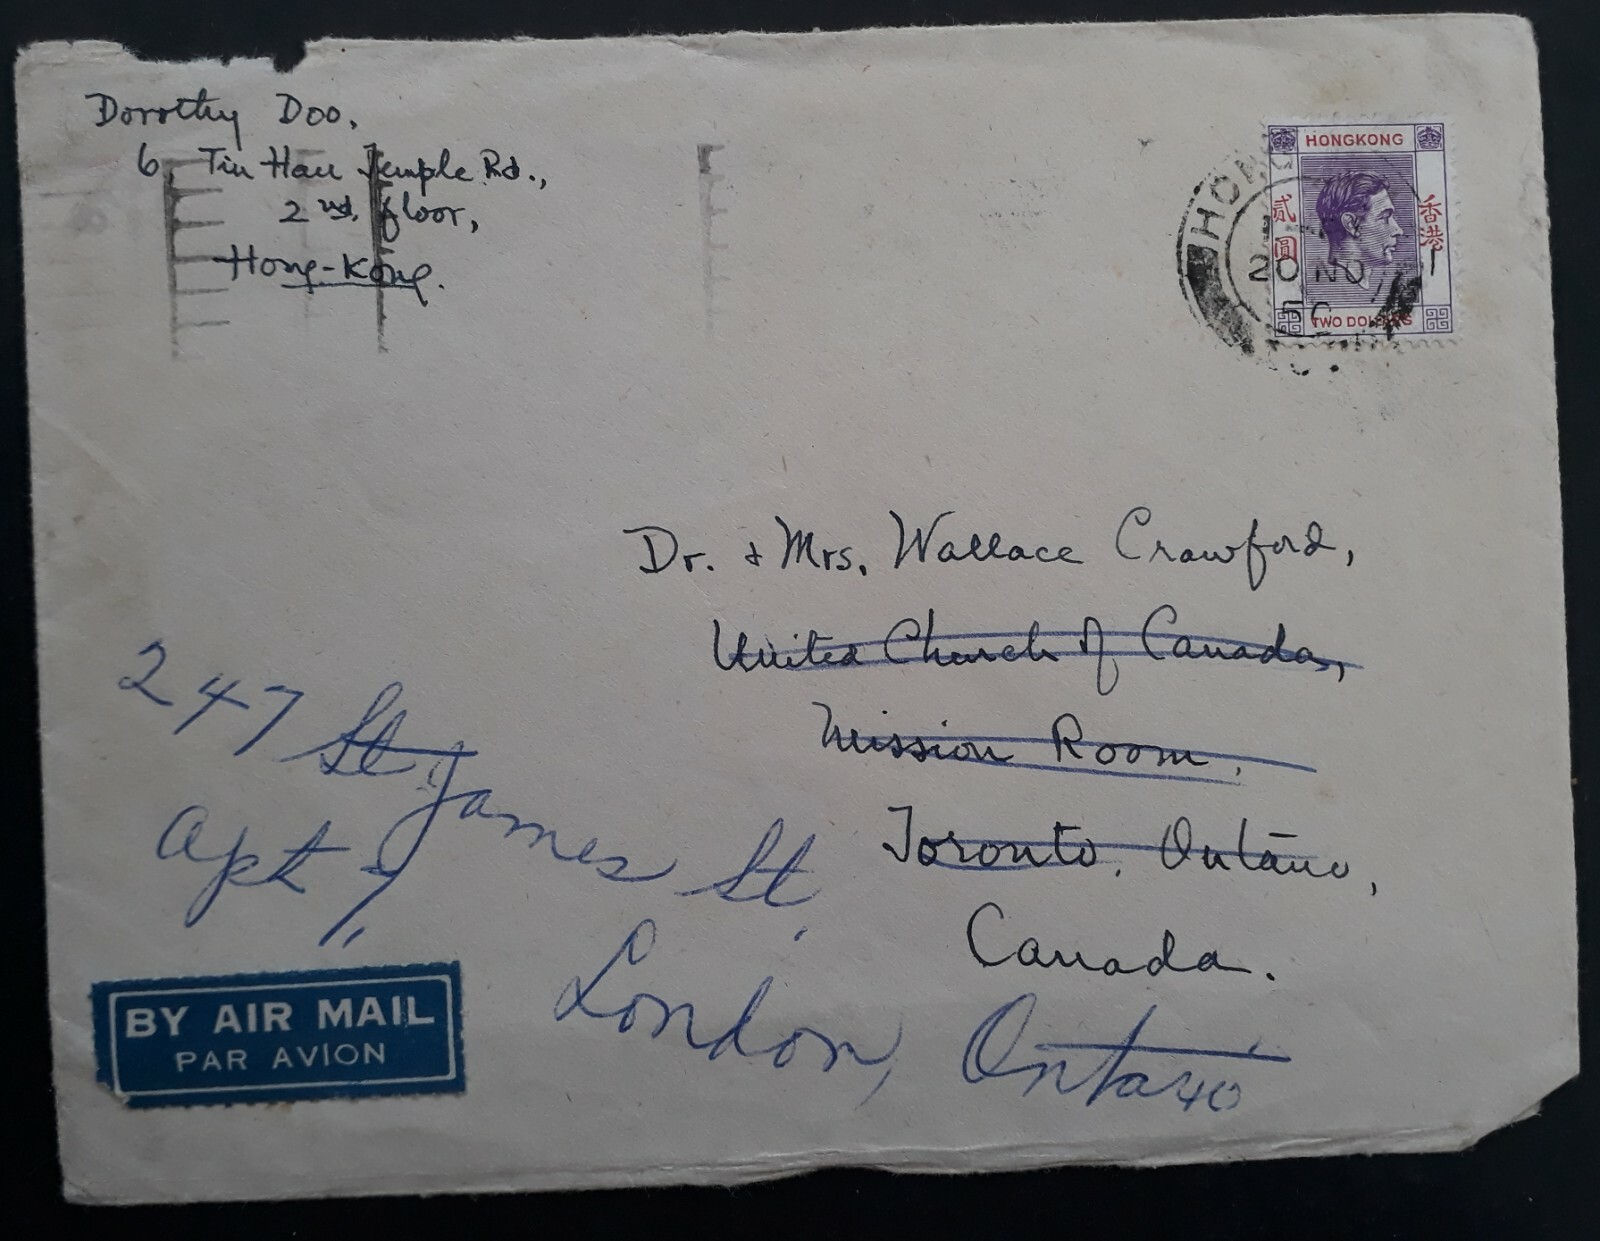 Dorothy Doo,
6, Tin Hau Temple Rd.,
2nd, floor,
Hong-Kong.
HONGKONG
貳圓
香港
TWO DOLLARS
HONG
20 NO
50
Dr. & Mrs. Wallace Crawford,
United Church of Canada,
Mission Room,
Toronto, Ontario,
Canada.
247 St. James St.
Apt 7,
London, Ontario
BY AIR MAIL
PAR AVION